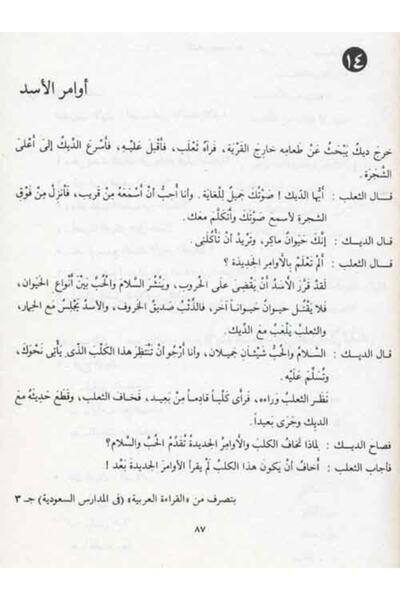 ١٤
أوامر الأسد
خرج ديكٌ يَبْحَثُ عَنْ طعامِه خارجَ القَرْيَة، فَرآهُ ثَعْلَب، فأقْبَلَ عَلَيْهِ، فأسْرَعَ الدِّيكُ إلى أعْلَى
الشَّجَرَة.
قـال الثعلب : أيُّها الدِّيك ! صَوْتُكَ جَميلٌ لِلْغاية. وأنا أُحِبُّ أنْ أسْمَعَهُ مِنْ قَريب، فَأنْزِلْ مِنْ فَوْقِ
الشجرة لأسمعَ صَوْتَكَ وأتَكَلَّمَ مَعَك.
قال الديـك : إنَّكَ حَيَوانٌ ماكِر، وتُرِيدُ أنْ تَأْكُلَنِى.
قـال الثعلب : ألَمْ تَعْلَمْ بِالأوامِرِ الجَديدَة ؟
لَقَدْ قَرَّرَ الأسَدُ أنْ يَقْضِىَ عَلَى الحُروبِ، ويَنْشُرَ السَّلامَ والحُبَّ بَيْنَ أنْواعِ الحَيَوان،
فلا يَقْتُلَ حيوانٌ حيواناً آخر، فالذِّئْبُ صَديقُ الخَروف، والأسدُ يَجْلِسُ مَعَ الحِمار،
والثعلب يَلْعَبُ مَعَ الدِّيك.
قال الديـك : السَّلامُ والحُبُّ شَيْئـانِ جَميلان، وأنا أرْجُو أنْ تَنْتَظِرَ هٰذا الكَلْبَ الذى يأتى نَحْوَكَ،
وتُسَلِّمَ عَلَيْه.
نَظَـرَ الثعلبُ وَراءه، فرأى كَلْباً قادِماً مِنْ بَعيد، فَخـافَ الثعلب، وقَطَعَ حَديثَهُ مع
الديك وجَرَى بَعيداً.
فصاح الديـك : لماذا تَخافُ الكلبَ والأوامرُ الجديدةُ تُقَدِّمُ الحُبَّ والسَّلام؟
فأجاب الثعلب : أخافُ أنْ يكونَ هذا الكلب لَمْ يَقْرأ الأوامرَ الجديدةَ بَعْد !
بتصرف من «القراءة العربية» (فى المدارس السعودية) جـ ٣
٨٧